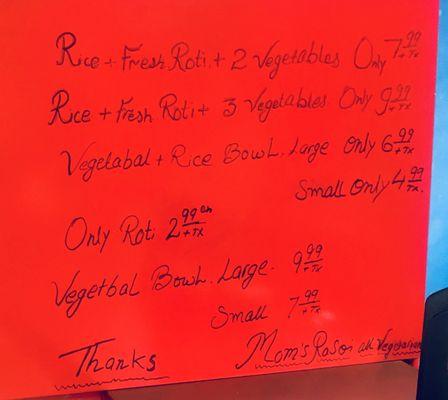 Rice + Fresh Roti + 2 Vegetables Only 7.99 + Tx
Rice + Fresh Roti + 3 Vegetables. Only 9.99 + Tx
Vegetabal + Rice Bowl. Large Only 6.99 + Tx
Small Only 4.99 + Tx.
Only Roti 2.99 each + Tx
Vegetbal Bowl. Large. 9.99 + Tx
Small 7.99 + Tx
Thanks Mom's Rasoi all Vegetarian